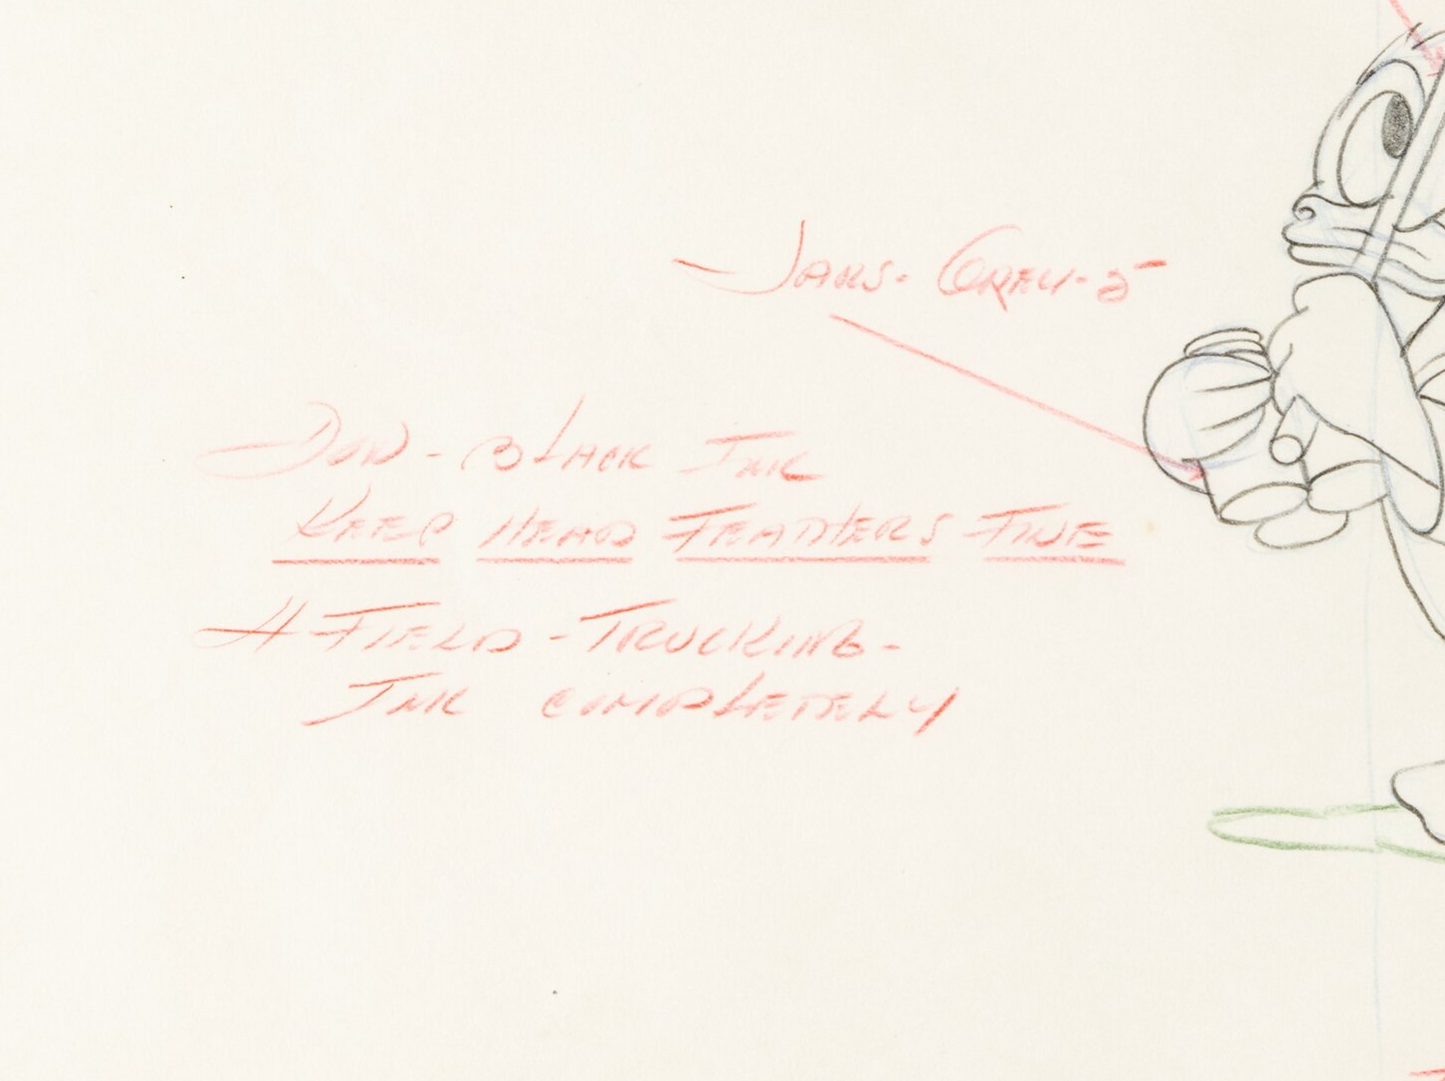 JARS - GREY - 5
DON - BLACK INK
KEEP HEAD FEATHERS FINE
4 FIELD - TRUCKING -
INK COMPLETELY